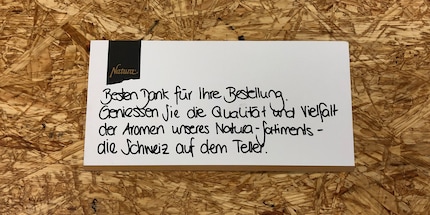 Natura
Besten Dank für Ihre Bestellung.
Geniessen Sie die Qualität und Vielfalt
der Aromen unseres Natura-Sortiments -
die Schweiz auf dem Teller.